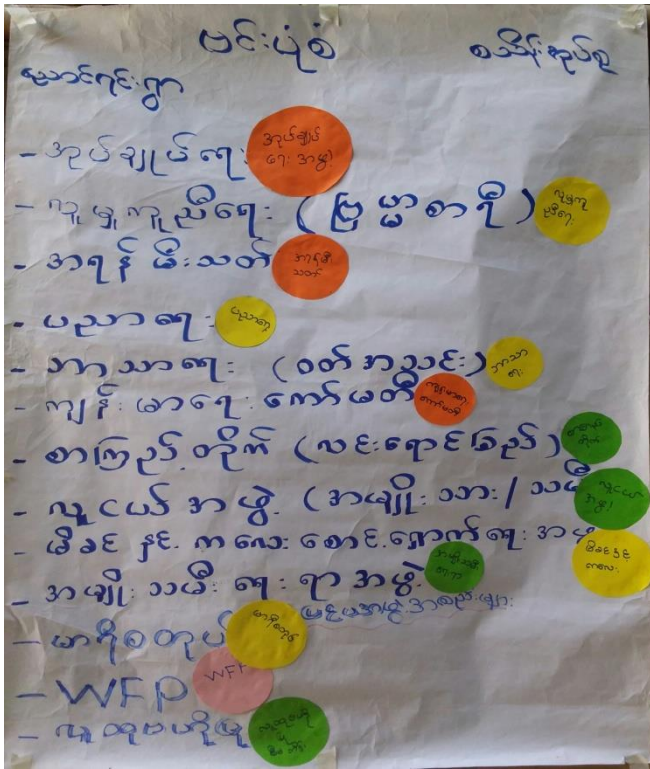 ဗင်းပုံစံ
စသိန်းအုပ်စု
ညောင်ရင်းရွာ
- အုပ်ချုပ်ရေး အုပ်ချုပ်ရေးအဖွဲ့
- လူမှုကူညီရေး (ဗြဟ္မာစာရီ) လူမှုကူညီရေး
- အရန်မီးသတ် အရန်မီးသတ်
- ပညာရေး ပညာရေး
- ဘာသာရေး (ဝတ်အသင်း) ဘာသာရေး
- ကျန်းမာရေးကော်မတီ ကျန်းမာရေးကော်မတီ
- စာကြည့်တိုက် (လင်းရောင်ခြည်) စာကြည့်တိုက်
- လူငယ်အဖွဲ့ (အမျိုးသား/သမီး လူငယ်အဖွဲ့
- မိခင်နှင့်ကလေးစောင့်ရှောက်ရေးအဖွဲ့ မိခင်နှင့်ကလေး
- အမျိုးသမီးရေးရာအဖွဲ့ အမျိုးသမီးရေးရာ
- မာရီစတုပ် မာရီစတုပ်
- WFP WFP
- လူထုဗဟိုပြု လူထုဗဟိုပြု